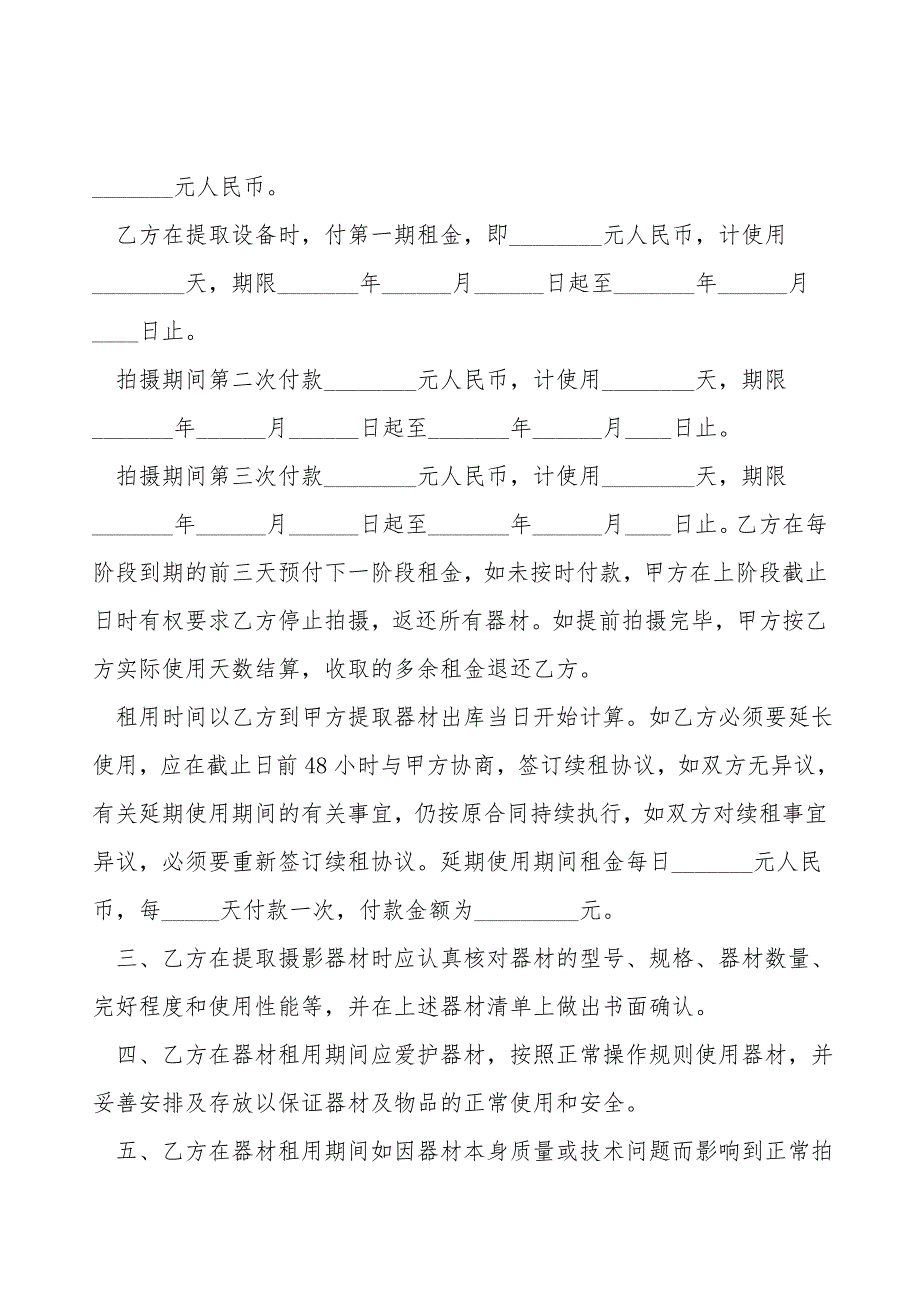 _______元人民币。
乙方在提取设备时，付第一期租金，即________元人民币，计使用
________天，期限_______年______月______日起至_______年______月
____日止。
拍摄期间第二次付款________元人民币，计使用________天，期限
_______年______月______日起至_______年______月____日止。
拍摄期间第三次付款________元人民币，计使用________天，期限
_______年______月______日起至_______年______月____日止。乙方在每
阶段到期的前三天预付下一阶段租金，如未按时付款，甲方在上阶段截止
日时有权要求乙方停止拍摄，返还所有器材。如提前拍摄完毕，甲方按乙
方实际使用天数结算，收取的多余租金退还乙方。
租用时间以乙方到甲方提取器材出库当日开始计算。如乙方必须要延长
使用，应在截止日前48小时与甲方协商，签订续租协议，如双方无异议，
有关延期使用期间的有关事宜，仍按原合同持续执行，如双方对续租事宜
异议，必须要重新签订续租协议。延期使用期间租金每日_______元人民
币，每_____天付款一次，付款金额为_________元。
三、乙方在提取摄影器材时应认真核对器材的型号、规格、器材数量、
完好程度和使用性能等，并在上述器材清单上做出书面确认。
四、乙方在器材租用期间应爱护器材，按照正常操作规则使用器材，并
妥善安排及存放以保证器材及物品的正常使用和安全。
五、乙方在器材租用期间如因器材本身质量或技术问题而影响到正常拍